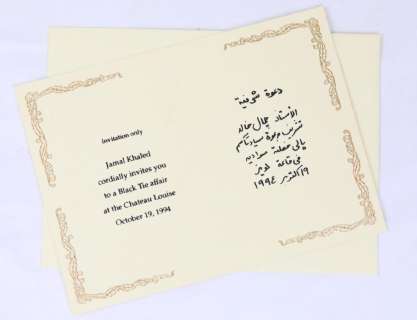 invitation only
Jamal Khaled
cordially invites you
to a Black Tie affair
at the Chateau Louise
October 19, 1994
دعوة شرفية
الأستاذ جمال خالد
يتشرف بدعوة سيادتكم
إلى حفلة
في قاعة لويز
١٩ أكتوبر ١٩٩٤